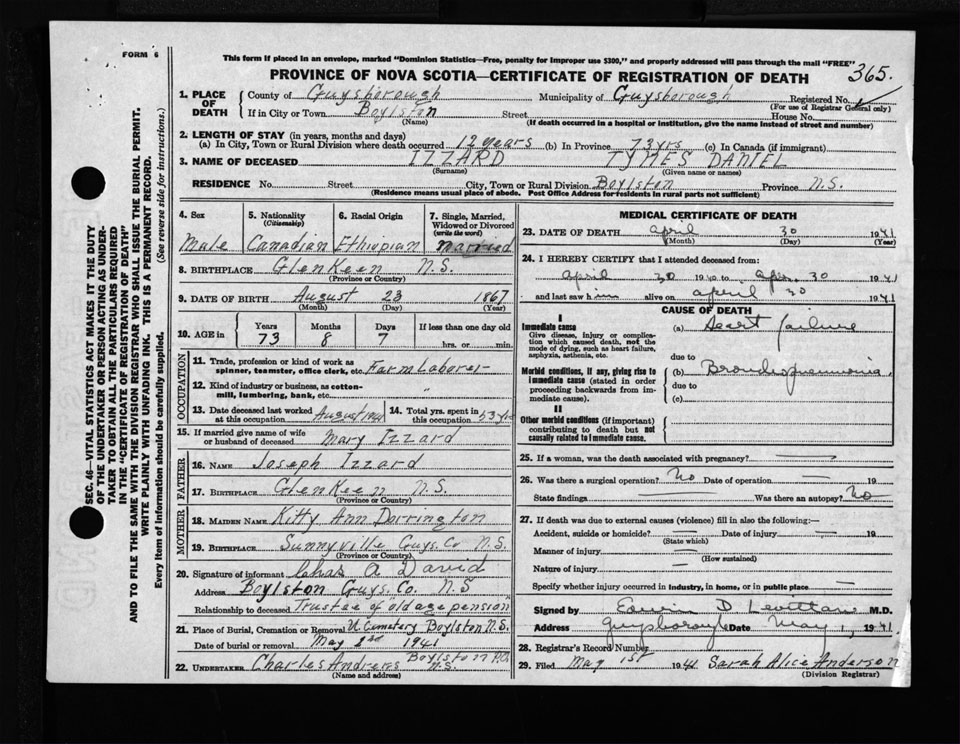 FORM 6
This form if placed in an envelope, marked "Dominion Statistics—Free, penalty for improper use $300," and properly addressed will pass through the mail "FREE"
365.
PROVINCE OF NOVA SCOTIA—CERTIFICATE OF REGISTRATION OF DEATH
1. PLACE OF DEATH County of Guysborough Municipality of Guysborough Registered No.
(For use of Registrar General only)
If in City or Town Boylston Street House No.
(Name) (If death occurred in a hospital or institution, give the name instead of street and number)
2. LENGTH OF STAY (in years, months and days)
(a) In City, Town or Rural Division where death occurred 12 years (b) In Province 73 yrs (c) In Canada (if immigrant)
3. NAME OF DECEASED IZZARD TYMES DANIEL
(Surname) (Given name or names)
RESIDENCE No. Street City, Town or Rural Division Boylston Province N.S.
(Residence means usual place of abode. Post Office Address for residents in rural parts not sufficient)
4. Sex 5. Nationality (Citizenship) 6. Racial Origin 7. Single, Married, Widowed or Divorced (write the word)
Male Canadian Ethiopian married
8. BIRTHPLACE Glenkeen N.S.
(Province or Country)
9. DATE OF BIRTH August 23 1867
(Month) (Day) (Year)
10. AGE in Years Months Days If less than one day old
73 8 7 hrs. or min.
OCCUPATION
11. Trade, profession or kind of work as spinner, teamster, office clerk, etc. Farm Laborer
12. Kind of industry or business, as cotton-mill, lumbering, bank, etc. "
13. Date deceased last worked at this occupation August 14. Total yrs. spent in this occupation 53 yrs
15. If married give name of wife or husband of deceased Mary Izzard
FATHER
16. NAME Joseph Izzard
17. BIRTHPLACE Glenkeen N.S.
(Province or Country)
MOTHER
18. MAIDEN NAME Kitty Ann Dorrington
19. BIRTHPLACE Sunnyville Guys. Co N.S.
(Province or Country)
20. Signature of informant Chas A David
Address Boylston Guys. Co. N.S
Relationship to deceased Trustee of old age pension
21. Place of Burial, Cremation or Removal U. Cemetery Boylston N.S.
Date of burial or removal May 1941
22. UNDERTAKER Charles Andrews Boylston P.O. N.S.
(Name and address)
MEDICAL CERTIFICATE OF DEATH
23. DATE OF DEATH April 30 1941
(Month) (Day) (Year)
24. I HEREBY CERTIFY that I attended deceased from:
April 30 1940 to Apr. 30 1941
and last saw him alive on April 30 1941
CAUSE OF DEATH
I
Immediate cause
Give disease, injury or complication which caused death, not the mode of dying, such as heart failure, asphyxia, asthenia, etc.
(a) Heart failure
due to
Morbid conditions, if any, giving rise to immediate cause (stated in order proceeding backwards from immediate cause).
(b) Bronchopneumonia.
due to
(c)
II
Other morbid conditions (if important) contributing to death but not causally related to immediate cause.
25. If a woman, was the death associated with pregnancy? —
26. Was there a surgical operation? No Date of operation —
State findings — Was there an autopsy? No
27. If death was due to external causes (violence) fill in also the following:—
Accident, suicide or homicide? — Date of injury — 19
(State which)
Manner of injury —
(How sustained)
Nature of injury —
Specify whether injury occurred in industry, in home, or in public place —
Signed by Edwin D M.D.
Address Guysborough Date May 1, 1941.
28. Registrar's Record Number
29. Filed May 1st 1941 Sarah Alice Anderson
(Division Registrar)
SEC. 46—VITAL STATISTICS ACT MAKES IT THE DUTY
OF THE UNDERTAKER OR PERSON ACTING AS UNDER-
TAKER TO OBTAIN ALL THE PARTICULARS REQUIRED
IN THE "CERTIFICATE OF REGISTRATION OF DEATH"
AND TO FILE THE SAME WITH THE DIVISION REGISTRAR WHO SHALL ISSUE THE BURIAL PERMIT.
WRITE PLAINLY WITH UNFADING INK. THIS IS A PERMANENT RECORD.
Every item of information should be carefully supplied. (See reverse side for instructions.)